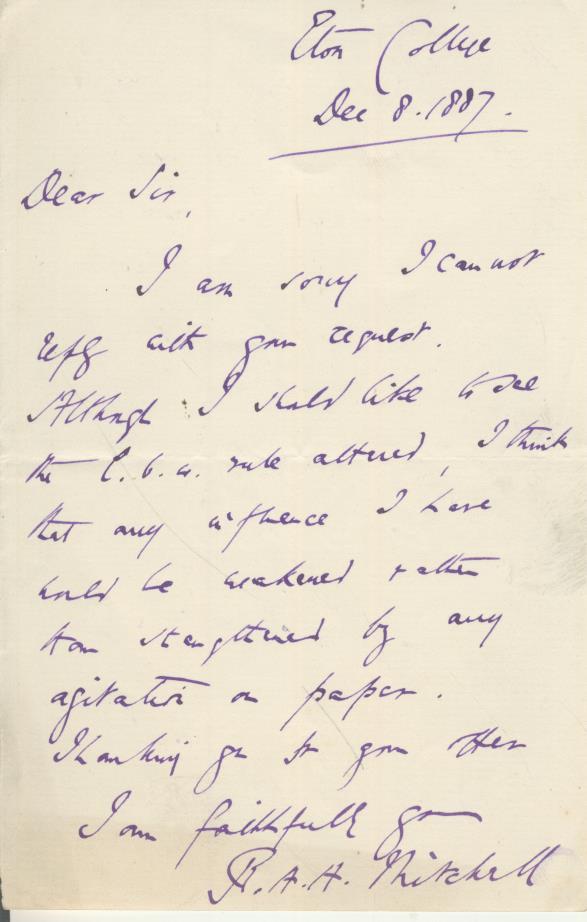 Eton College
Dec 8. 1887.
Dear Sir,
I am sorry I cannot
with your request.
Although I should like to see
the l.b.w. rule altered, I think
that any influence I have
would be weakened rather
than strengthened by any
agitation on paper.
Thanking you for your offer
I am faithfully yrs
R.A.H. Mitchell